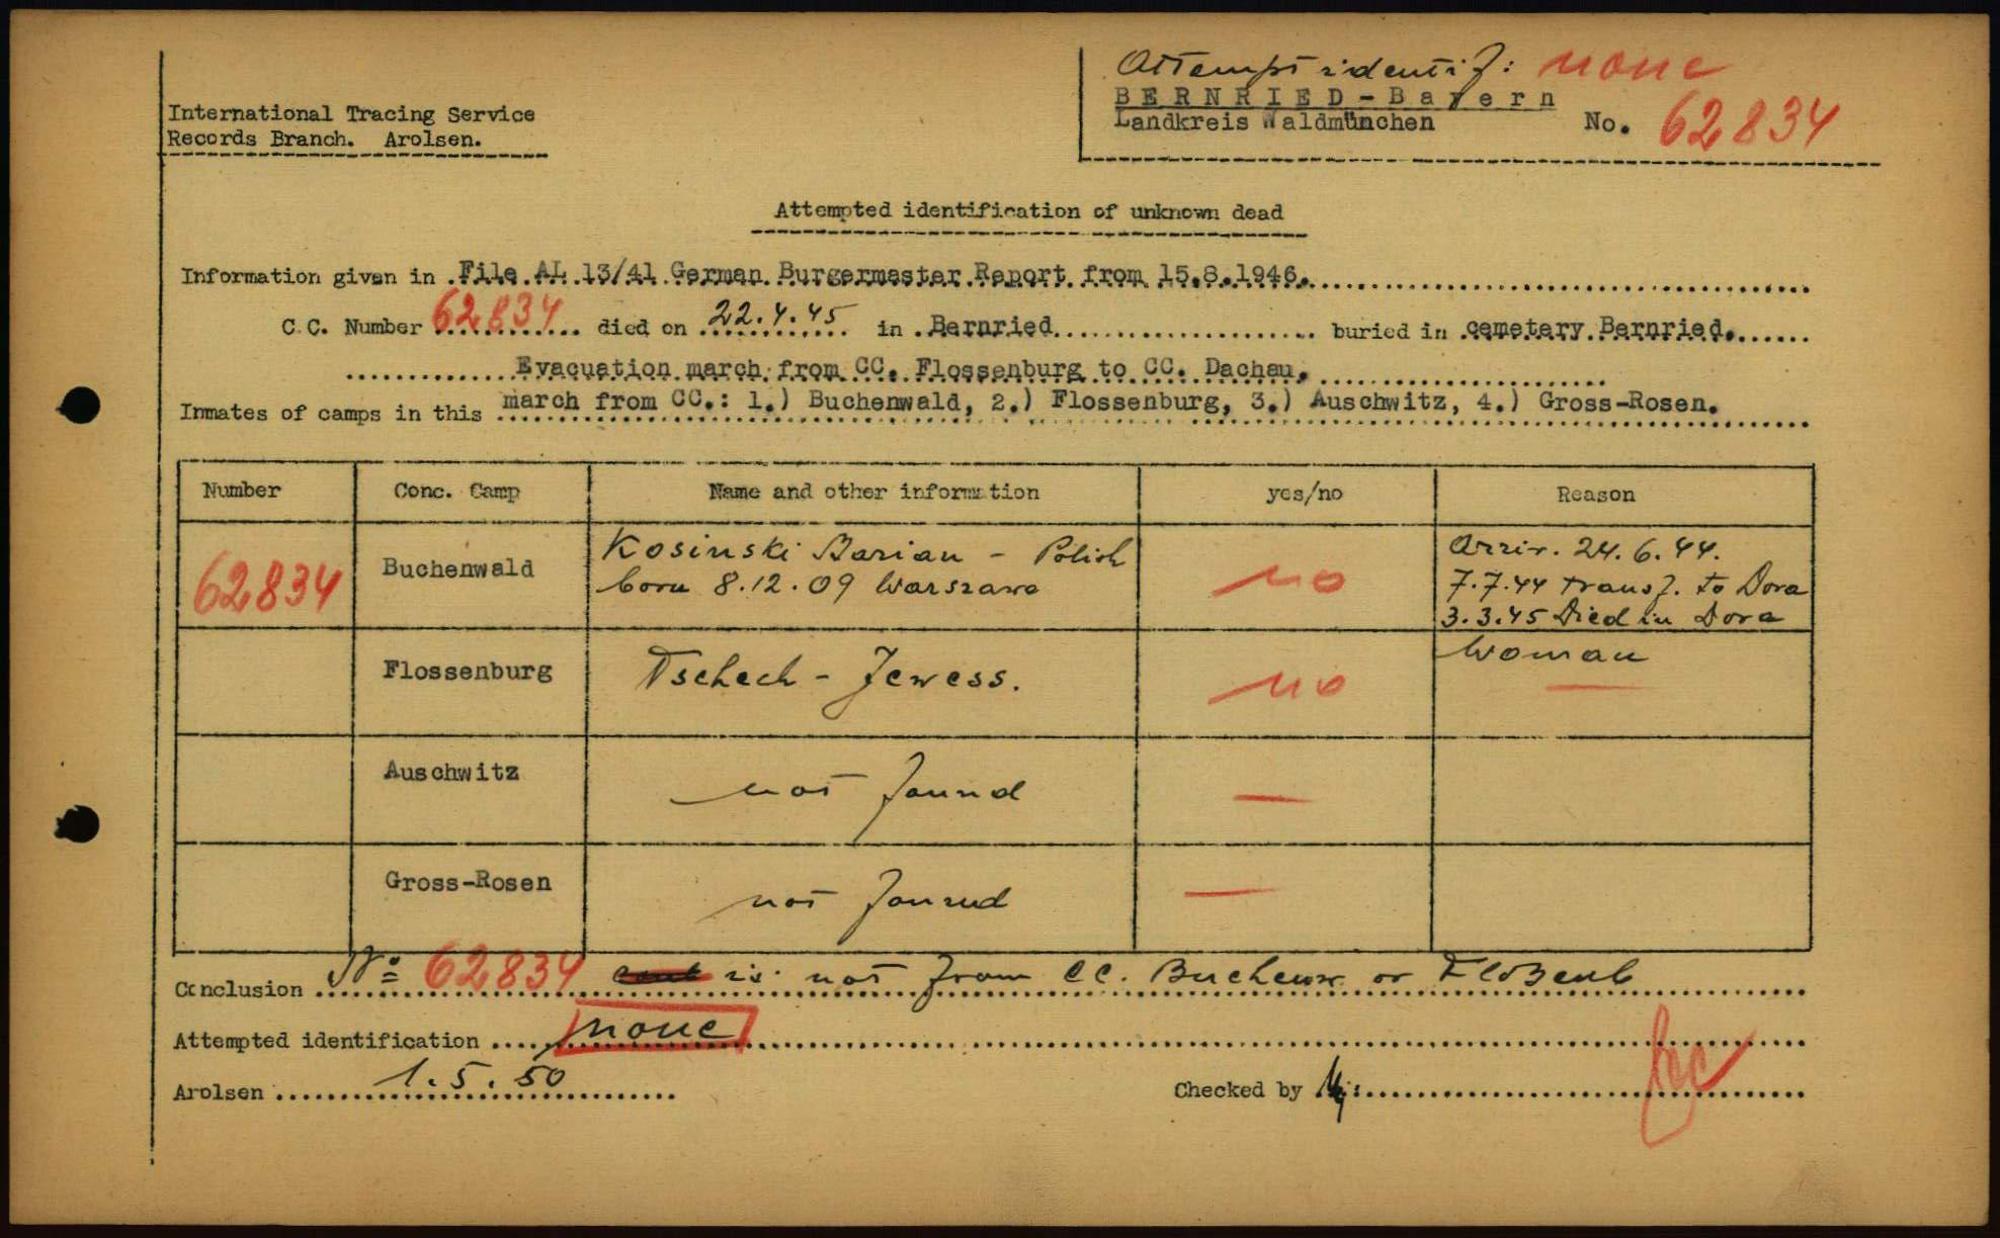 Attempt identif: none
BERNRIED-Bayern
Landkreis Waldmünchen No. 62834
International Tracing Service
Records Branch. Arolsen.
Attempted identification of unknown dead
Information given in .File AL 13/41 German Burgermaster Report from 15.8.1946.
C.C. Number 62834 died on 22.4.45 in .Bernried buried in cemetary Bernried.
Evacuation march from CC. Flossenburg to CC. Dachau.
Inmates of camps in this march from CC.: 1.) Buchenwald, 2.) Flossenburg, 3.) Auschwitz, 4.) Gross-Rosen.
Number Conc. Camp Name and other information yes/no Reason
62834 Buchenwald Kosinski Marian - Polish no Arriv. 24.6.44.
born 8.12.09 Warszawa 7.7.44 transf. to Dora
3.3.45 Died in Dora
Flossenburg Tschech - Jewess. no Woman
Auschwitz not found —
Gross-Rosen not found —
Conclusion No 62834 is not from CC. Buchenw. or Floßenb
Attempted identification none
Arolsen 1.5.50 Checked by